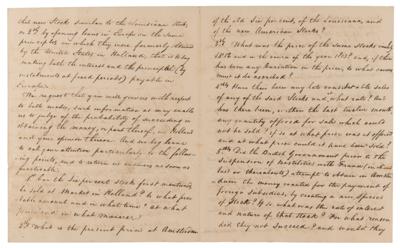 this new Stock similar to the Louisiana stock,
or 3ᵈ by opening loans in Europe on the same
principles in which they were formerly obtained
by the United States in Holland, that is to say
making both the interest and the principal (by
instalments at fixed periods) payable in
Europe.
We request that you will procure with respect
to both modes, such information as may enable
us to judge of the probability of succeeding in
obtaining the money, or part thereof, in Holland
and your opinion thereon. And we beg leave
to call your attention particularly to the follow-
ing points, and to return us answers as soon as
practicable.
1ˢᵗ Can the Six per cent Stock first mentioned
be sold at Market in Holland? to what pro-
bable amount and in what time? at what
price? and in what manner?
2ᵈ What is the present price at Amsterdam
of the old Six per cent, of the Louisiana, and
of the new American Stocks?
3ᵈ What was the price of the same Stocks in July
1811 and in the course of the year 1812? and, if there
has been any variation in the price, to what causes
must it be ascribed?
4ᵗʰ Have there been any late considerable sales
of any of the said Stocks and what rate? Or
has there been, within the last twelve months
any quantity offered for sale which could
not be sold? if so at what price was it offered
and at what price could it have been sold?
5ᵗʰ Did the British Government prior to the
suspension of hostilities with France (in the
last or thereabouts) attempt to obtain in Amster-
dam the money wanted for the payment of
foreign Subsidies, by creating a new species
of Stock? If so what was the rate of interest
and nature of that Stock? For what reason
did they not succeed? and would they